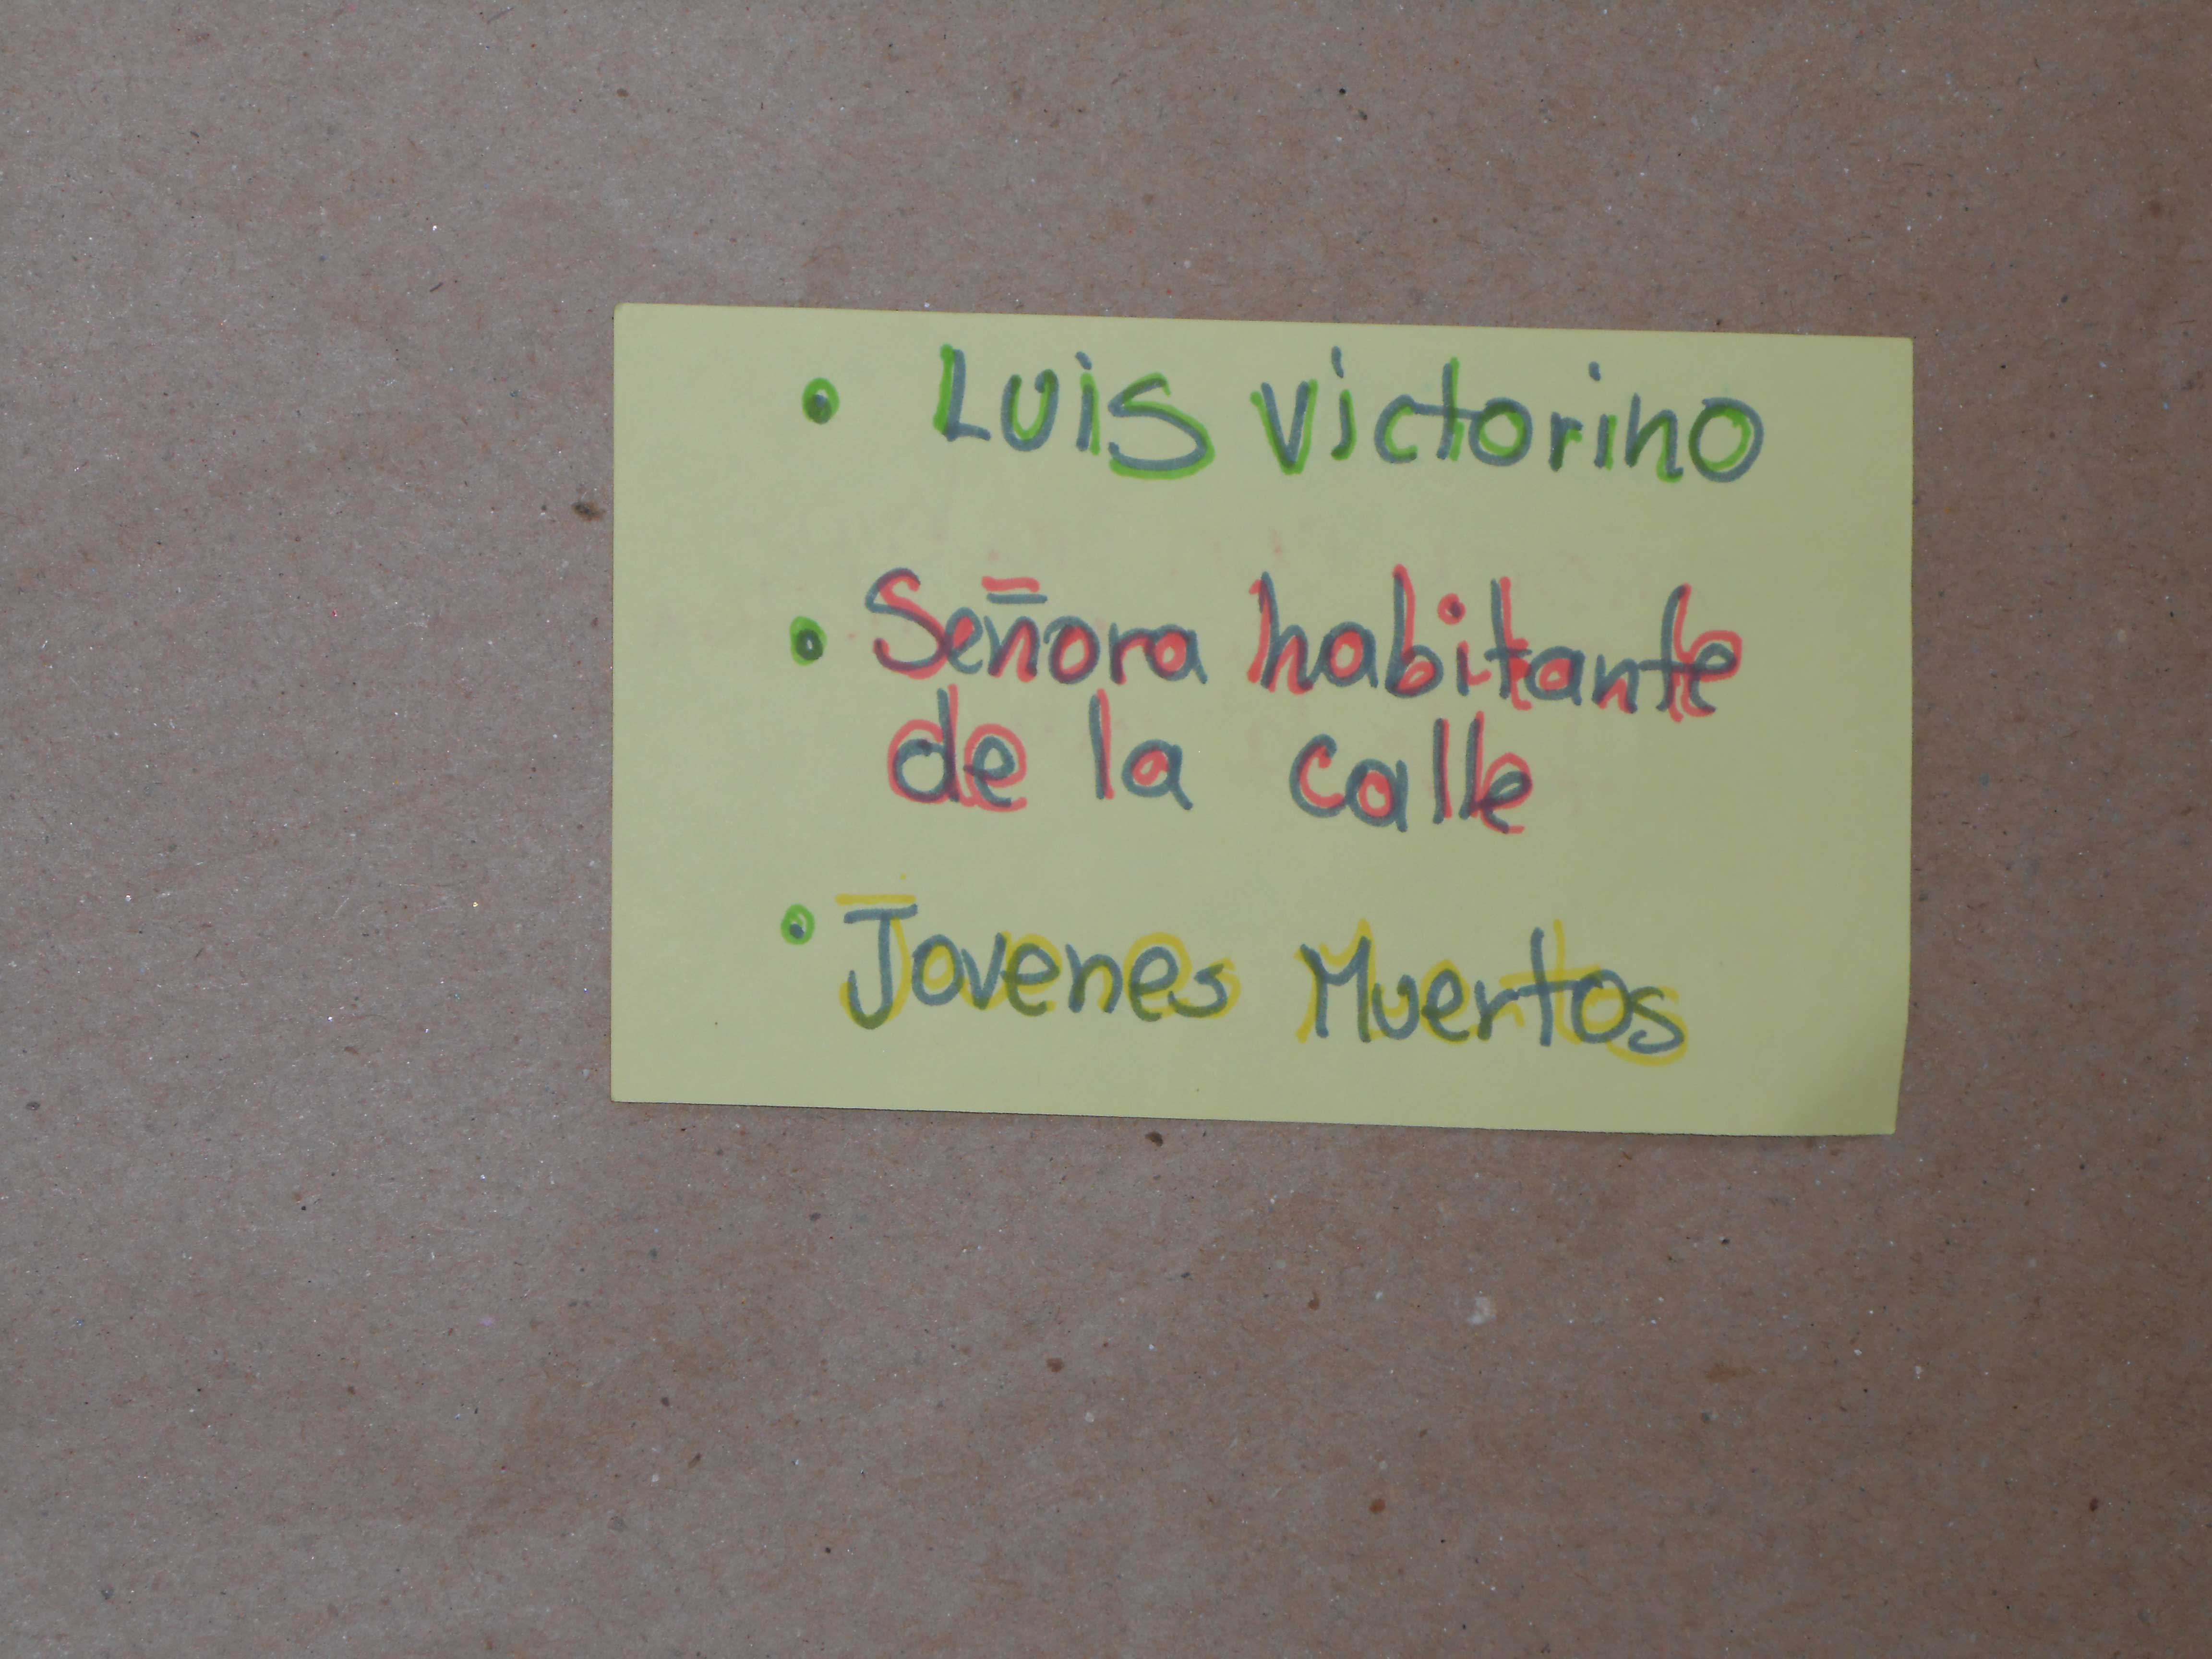 • Luis victorino
• Señora habitante
de la calle
• Jovenes Muertos